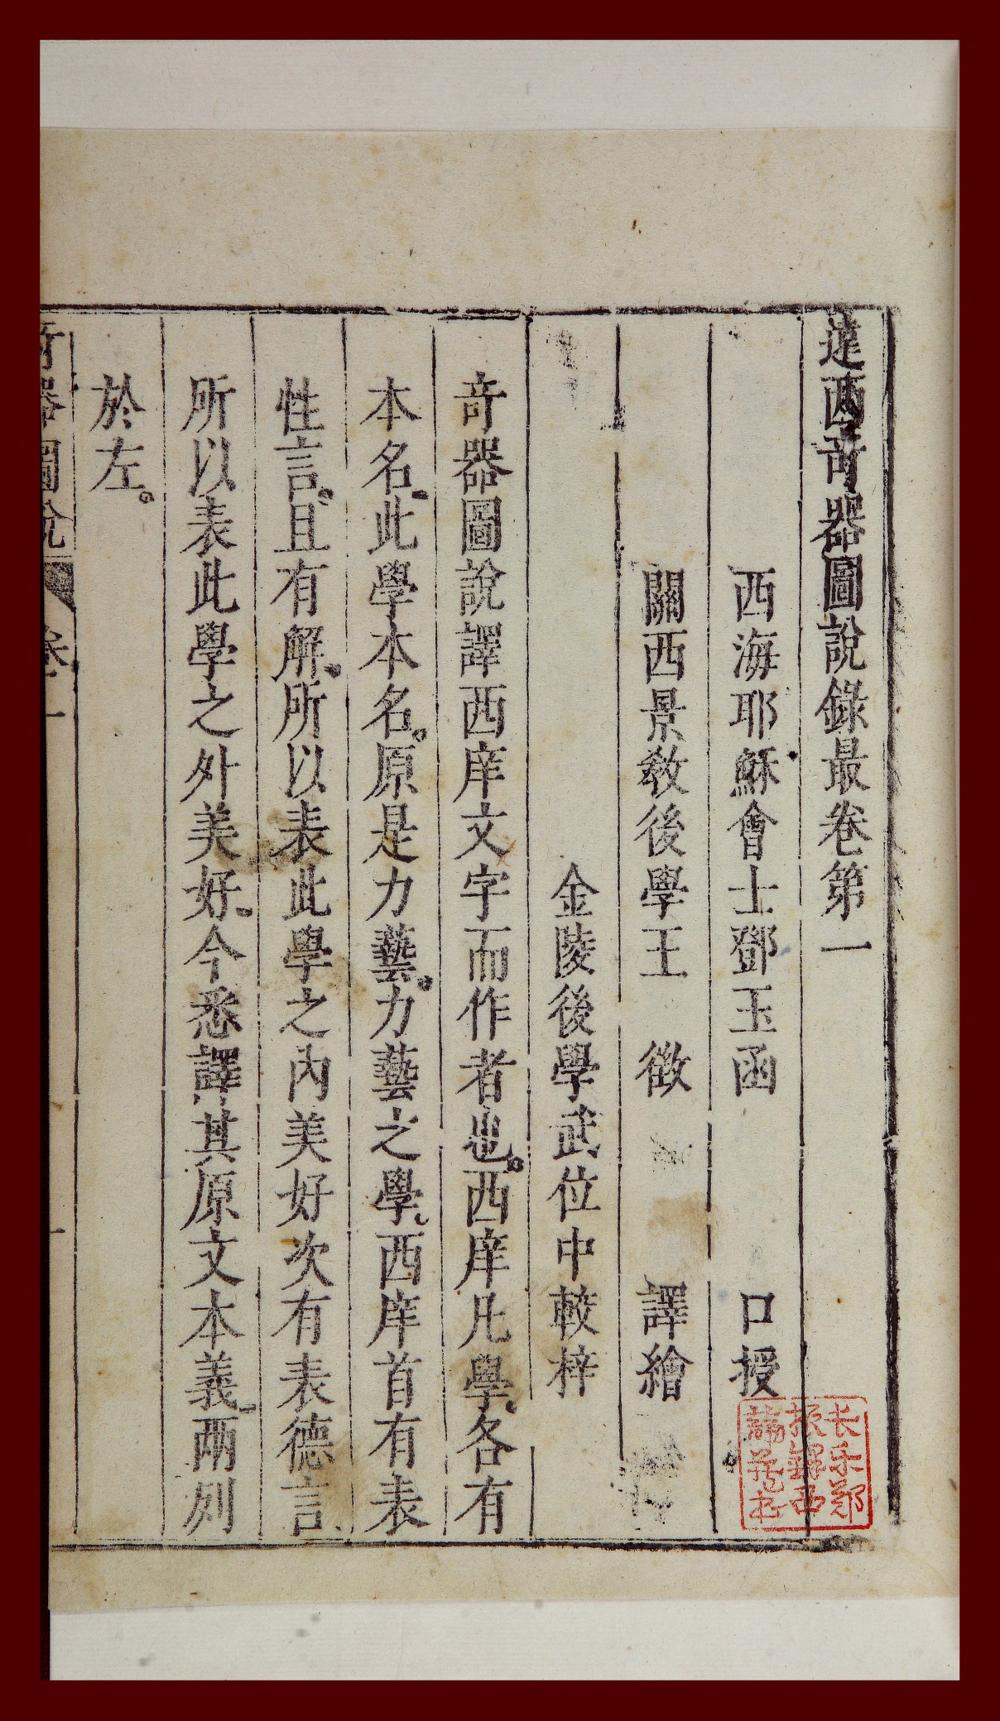 遠西奇器圖說錄最卷第一
西海耶穌會士鄧玉函 口授
關西景敎後學王 徵 譯繪
金陵後學武位中較梓
竒器圖說譯西庠文字而作者也。西庠凡學、各有
本名、此學本名。原是力藝。力藝之學、西庠首有表
性言、且有解、所以表此學之內美好次有表德言
所以表此學之外美好、今悉譯其原文本義、兩列
於左。
奇器圖說 卷一 一
长乐郑
振鐸西
諦藏书